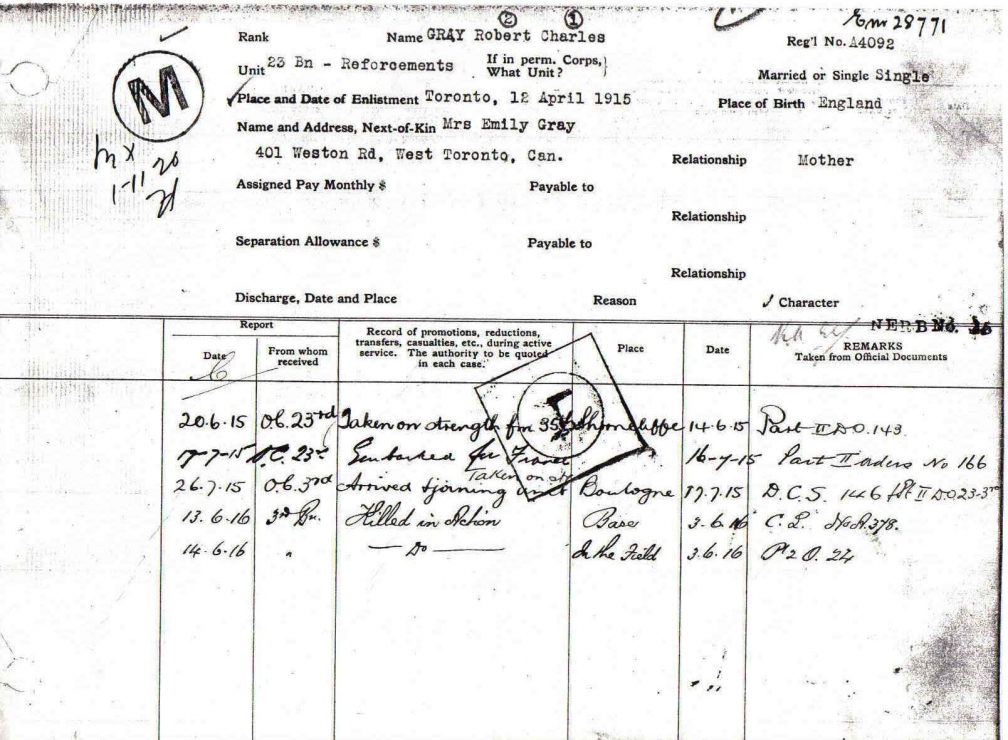 ② ①
Em 28771
Rank Name GRAY Robert Charles Reg'l No. A4092
Unit 23 Bn - Reforcements If in perm. Corps, What Unit? Married or Single Single
Place and Date of Enlistment Toronto, 12 April 1915 Place of Birth England
M
Name and Address, Next-of-Kin Mrs Emily Gray
401 Weston Rd, West Toronto, Can. Relationship Mother
1-11 20
Assigned Pay Monthly $ Payable to
Relationship
Separation Allowance $ Payable to
Relationship
Discharge, Date and Place Reason Character
NERB No.
Report
Date From whom received
Record of promotions, reductions, transfers, casualties, etc., during active service. The authority to be quoted in each case.
Place Date
REMARKS
Taken from Official Documents
20.6.15 O.C. 23rd Taken on strength fm 35th Shorncliffe 14.6.15 Part II D.O. 143
17-7-15 O.C. 23rd Embarked for France 16-7-15 Part II orders No 166
Taken on st
26.7.15 O.C. 3rd Arrived & joining unit Boulogne 17.7.15 D.C.S. 146 Pt II DO 23-3rd
13.6.16 3rd Bn. Killed in Action Base 3.6.16 C.L. No A.378.
14.6.16 " — Do — In the Field 3.6.16 Pt 2 O. 24